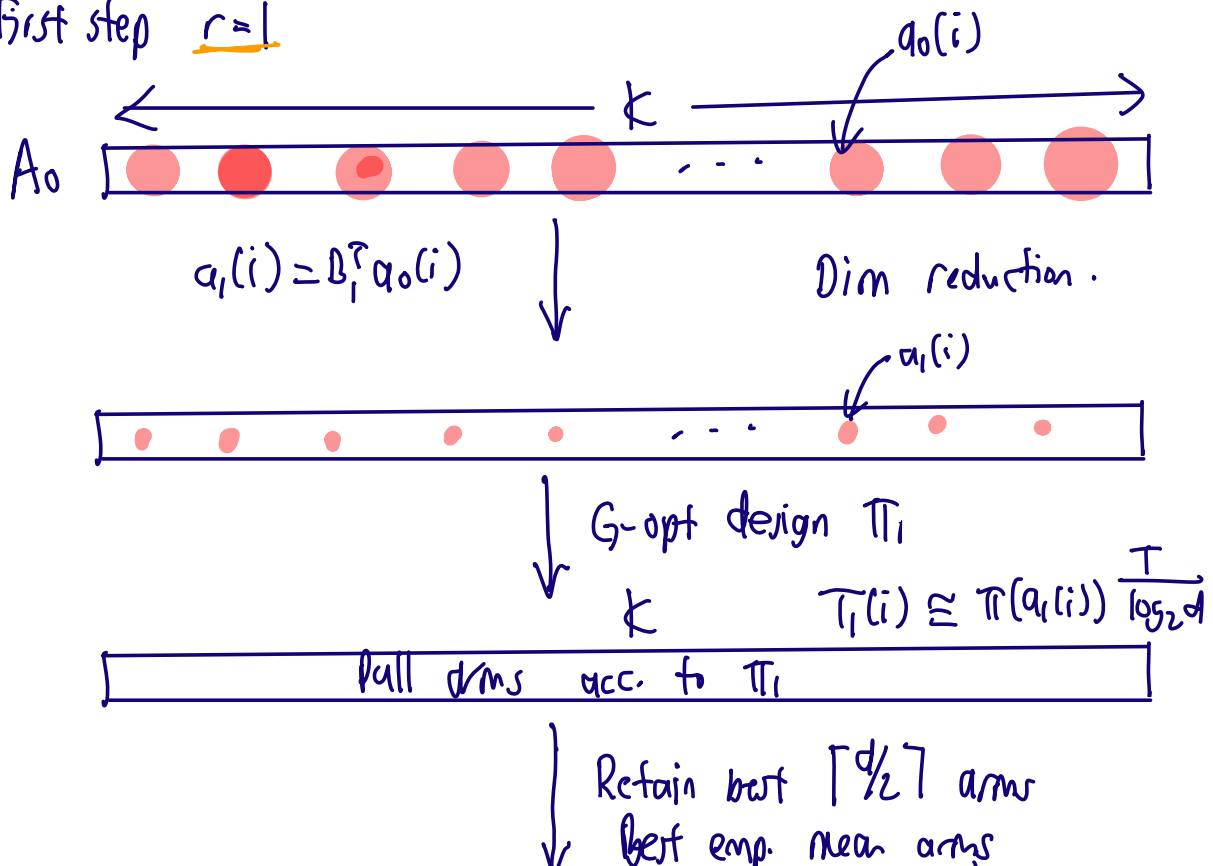 First step r=1
a₀(i)
K
A₀ ...
a₁(i) = B₁ᵀ a₀(i)
Dim reduction.
a₁(i)
...
G-opt design π₁
K T₁(i) ≅ π(a₁(i)) T/log₂d
Pull arms acc. to π₁
Retain best ⌈d/2⌉ arms
Best emp. mean arms